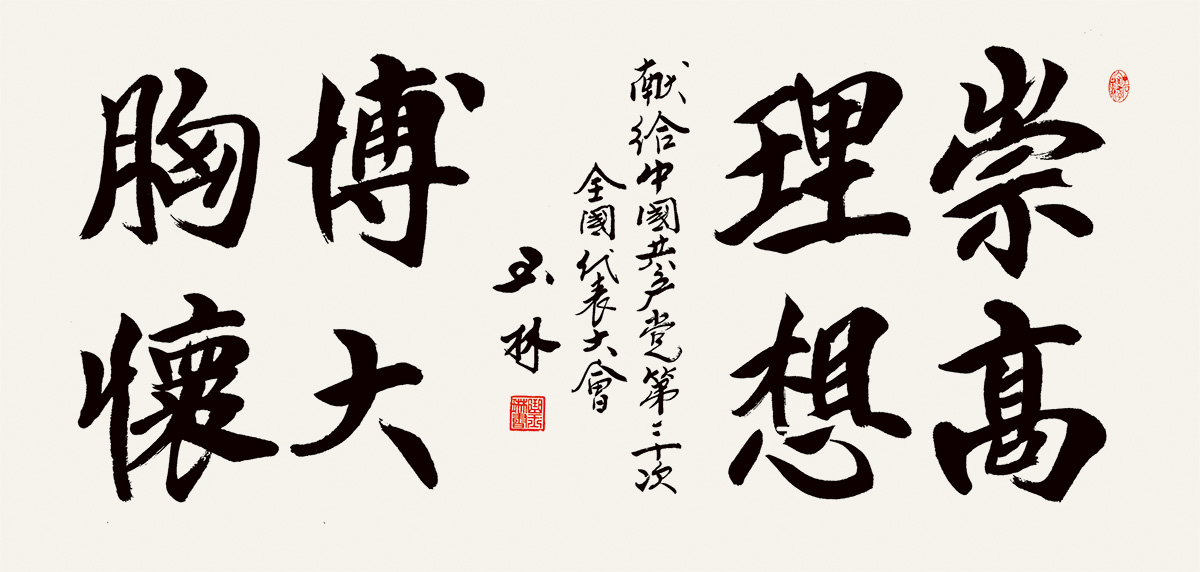 崇高
理想
献给中國共产党第二十次
全國代表大會
玉林
博大
胸懷